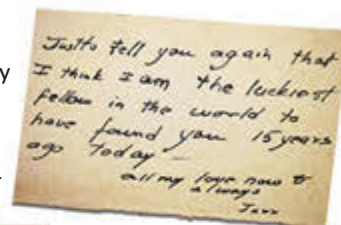 y
Just to tell you again that
I think I am the luckiest
fellow in the world to
have found you 15 years
ago today —
all my love now &
always